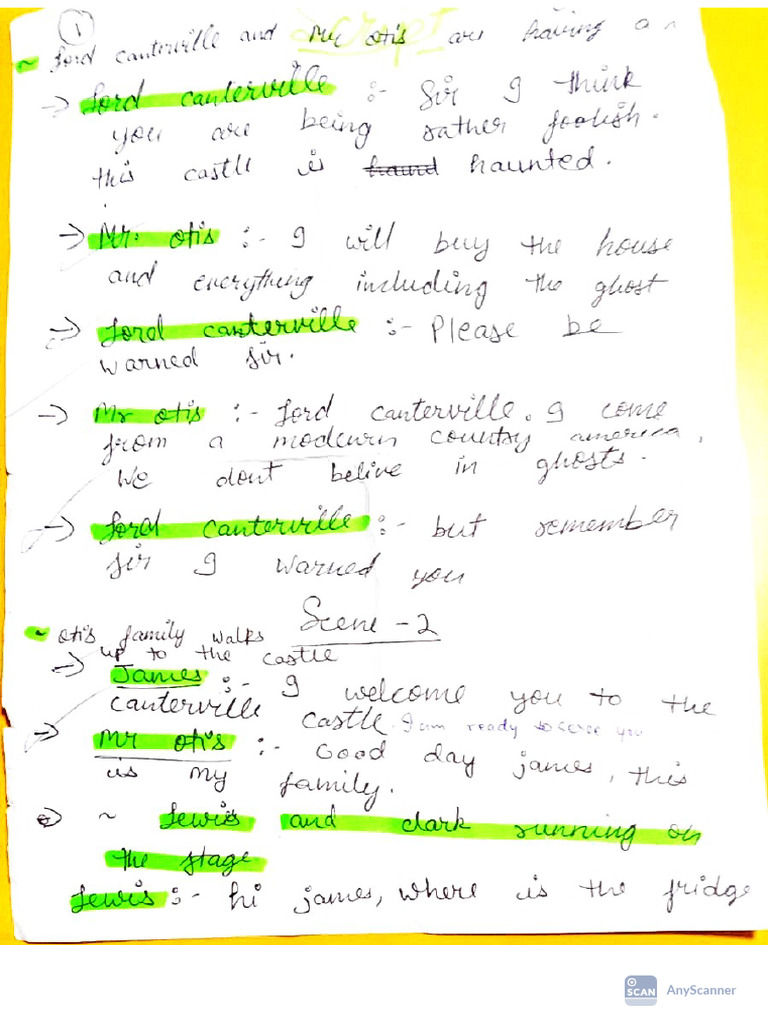 1
Script
~ Lord canterville and Mr otis are having a
→ Lord canterville :- Sir I think
you are being rather foolish.
this castle is haund haunted.
→ Mr. otis :- I will buy the house
and everything including the ghost
→ Lord canterville :- Please be
warned sir.
→ Mr otis :- Lord canterville. I come
from a modcurn country america,
We dont belive in ghosts.
→ Lord canterville :- but remember
sir I warned you
Scene - 2
~ otis family walks
up to the castle
→ James :- I welcome you to the
canterville castle. I am ready to serve you
→ Mr otis :- Good day james, this
is my family.
~ Lewis and clark running on
the stage
Lewis :- hi james, where is the fridge
SCAN AnyScanner